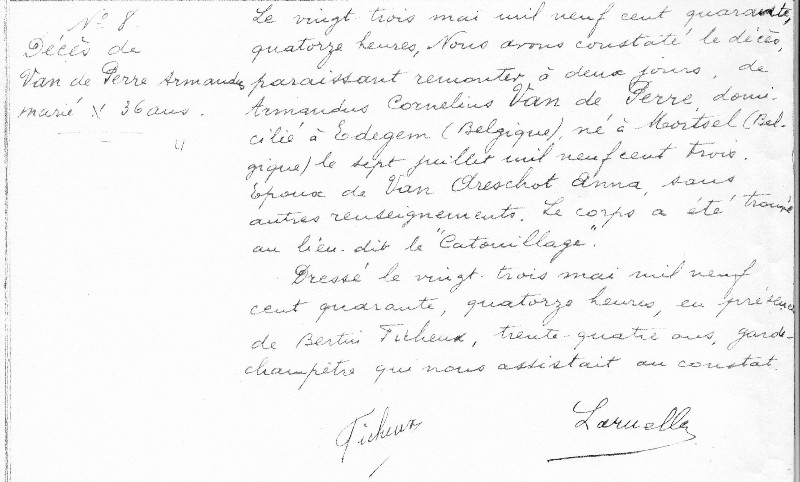 Nº 8
Décès de
Van de Perre Armandus
marié X 36 ans.
Le vingt-trois mai mil neuf cent quarante,
quatorze heures, Nous avons constaté le décès,
paraissant remonter à deux jours, de
Armandus Cornelius Van de Perre, domi-
cilié à Edegem (Belgique), né à Mortsel (Bel-
gique) le sept juillet mil neuf cent trois.
Epoux de Van Areschot Anna, sans
autres renseignements. Le corps a été trouvé
au lieu-dit le "Catouillage".
Dressé le vingt-trois mai mil neuf
cent quarante, quatorze heures, en présence
de Bertin Ficheux, trente-quatre ans, garde-
champêtre qui nous assistait au constat.
Ficheux
Laruelle